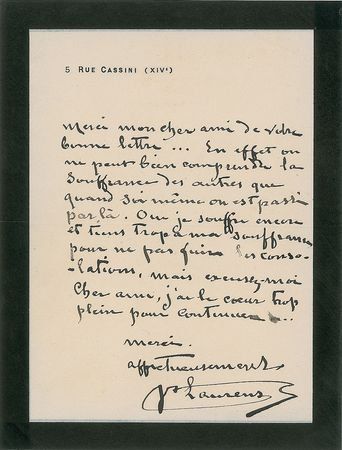 5 RUE CASSINI (XIVe)
Merci mon cher ami de votre
bonne lettre ... En effet on
ne peut bien comprendre la
souffrance des autres que
quand soi même on est passé
par là. Oui je souffre encore
et tiens trop à ma souffrance
pour ne pas fuir les conso-
-lations, mais excusez-moi
cher ami, j'ai le cœur trop
plein pour continuer ...
merci.
affectueusement
Laurens